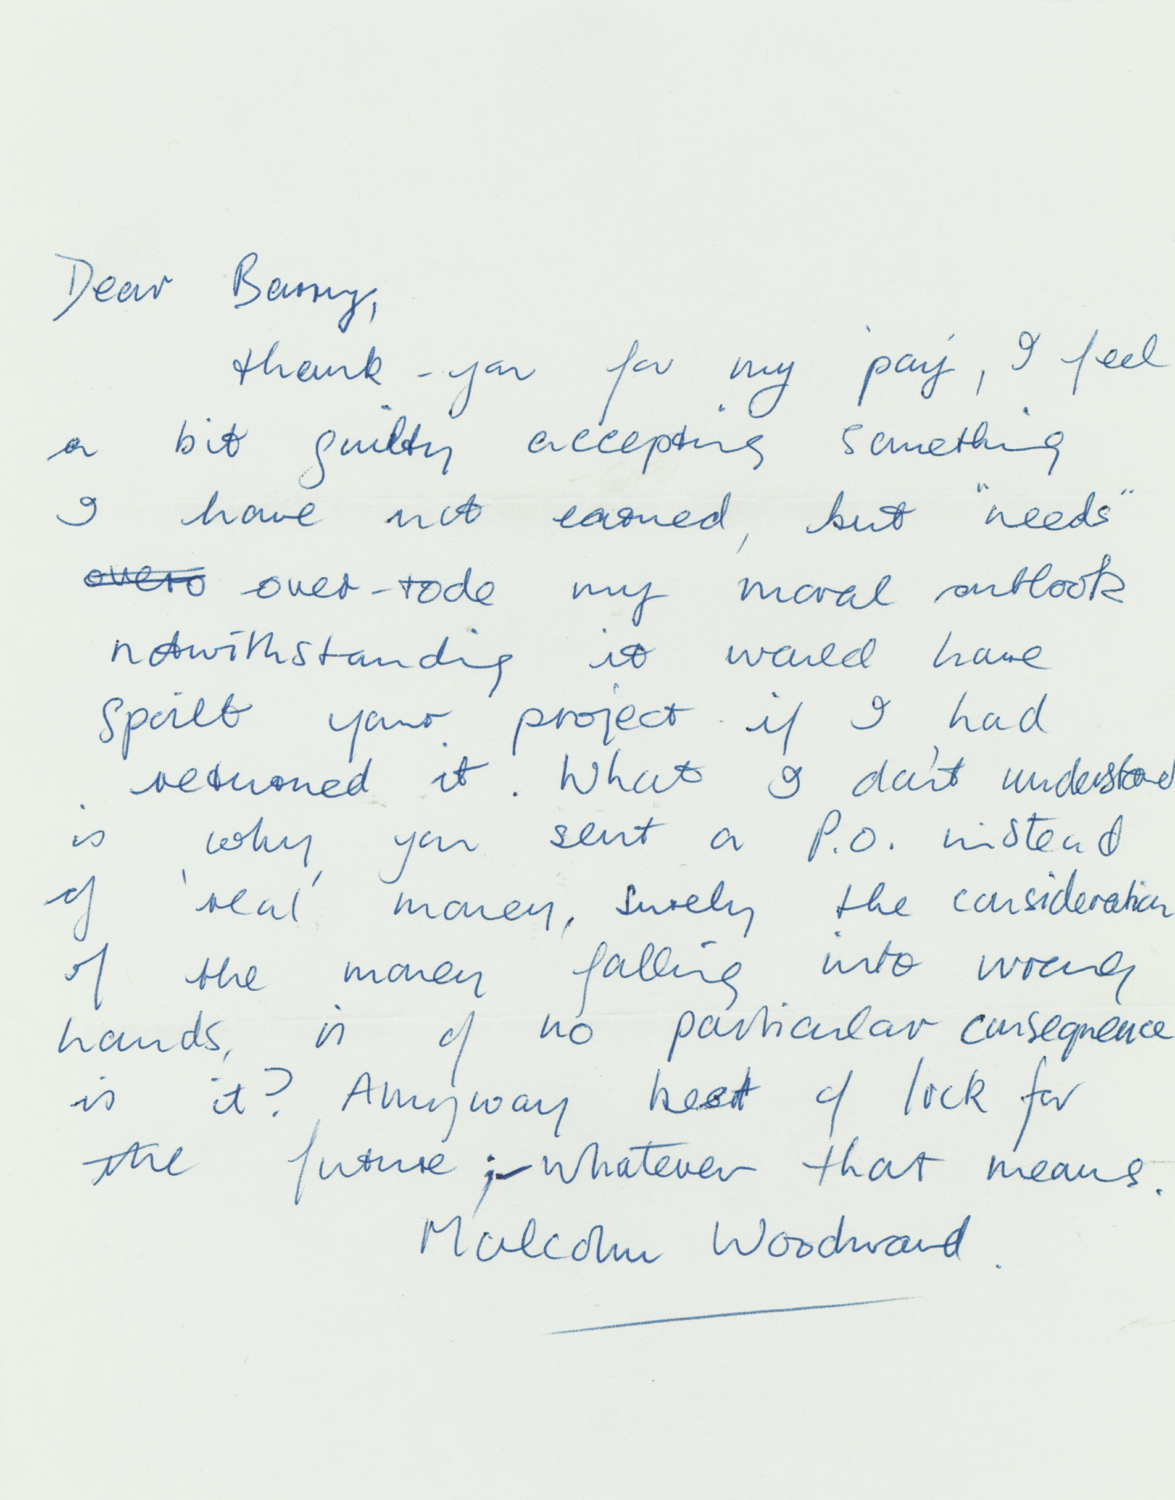 Dear Barry,
thank-you for my 'pay', I feel
a bit guilty accepting something
I have not earned, but "needs"
overo over-rode my moral outlook
notwithstanding it would have
spoilt your project if I had
returned it. What I don't understand
is why you sent a P.O. instead
of 'real' money, surely the consideration
of the money falling into wrong
hands, is of no particular consequence
is it? Anyway best of lock for
the future ;- whatever that means.
Malcolm Woodward.